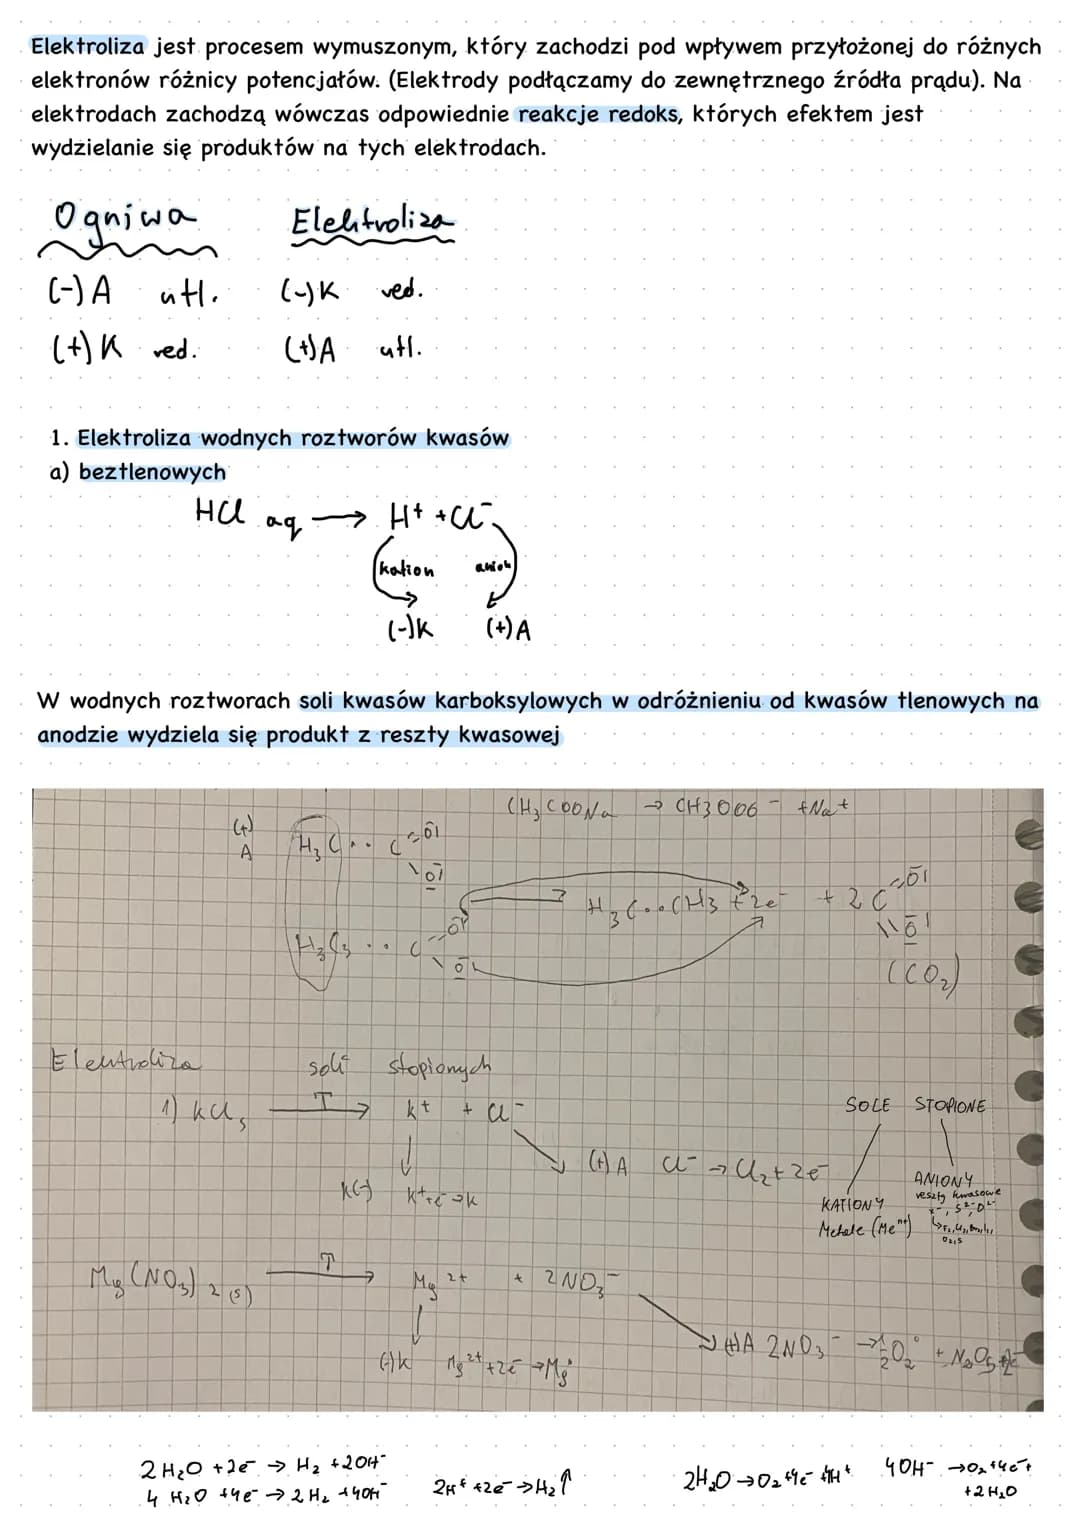 Elektroliza jest procesem wymuszonym, który zachodzi pod wpływem przyłożonej do różnych
elektronów różnicy potencjałów. (Elektrody podłączamy do zewnętrznego źródła prądu). Na
elektrodach zachodzą wówczas odpowiednie reakcje redoks, których efektem jest
wydzielanie się produktów na tych elektrodach.
Ogniwa Elektroliza
(-) A utl. (-) K red.
(+) K red. (+) A utl.
1. Elektroliza wodnych roztworów kwasów
a) beztlenowych
HCl aq → H⁺ + Cl⁻
kation anion
(-)K (+)A
W wodnych roztworach soli kwasów karboksylowych w odróżnieniu od kwasów tlenowych na
anodzie wydziela się produkt z reszty kwasowej
CH₃COONa → CH3OO6⁻ + Na⁺
(+)
A
H₃C
H₃C·· CH₃ + 2e⁻ + 2 C
(CO₂)
Elektroliza soli stopionych
1) KCl s T→ K⁺ + Cl⁻
SOLE STOPIONE
(+) A Cl⁻ → Cl₂ + 2e⁻
K(-) K⁺ + e⁻ → K
KATIONY
Metale (Meⁿ⁺)
ANIONY
reszty kwasowe
Mg(NO₃)₂ (s) T→ Mg²⁺ + 2NO₃⁻
(+)A 2NO₃⁻ → ½O₂ + N₂O₅ + 2e⁻
(-)K Mg²⁺ + 2e⁻ → Mg
2H₂O + 2e⁻ → H₂ + 2OH⁻
4 H₂O + 4e⁻ → 2H₂ + 4OH⁻
2H⁺ + 2e⁻ → H₂↑
2H₂O → O₂ + 4e⁻ + 4H⁺
4OH⁻ → O₂ + 4e⁻ +
+ 2H₂O